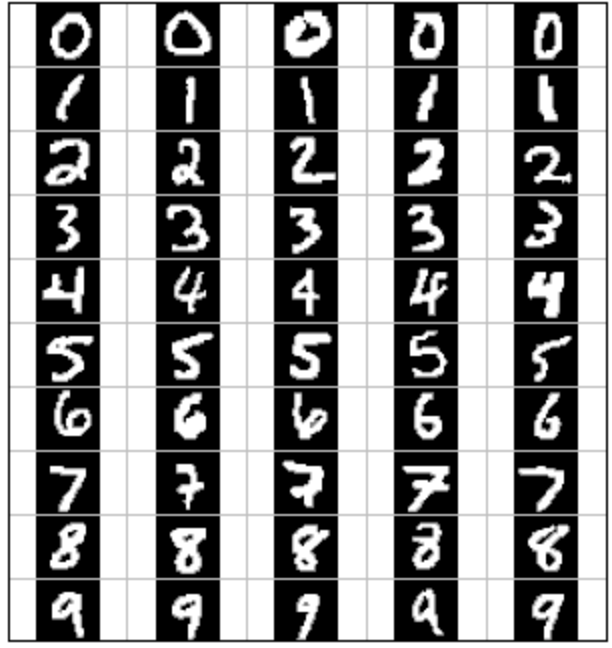 0 0 0 0 0
1 1 1 1 1
2 2 2 2 2
3 3 3 3 3
4 4 4 4 4
5 5 5 5 5
6 6 6 6 6
7 7 7 7 7
8 8 8 8 8
9 9 9 9 9